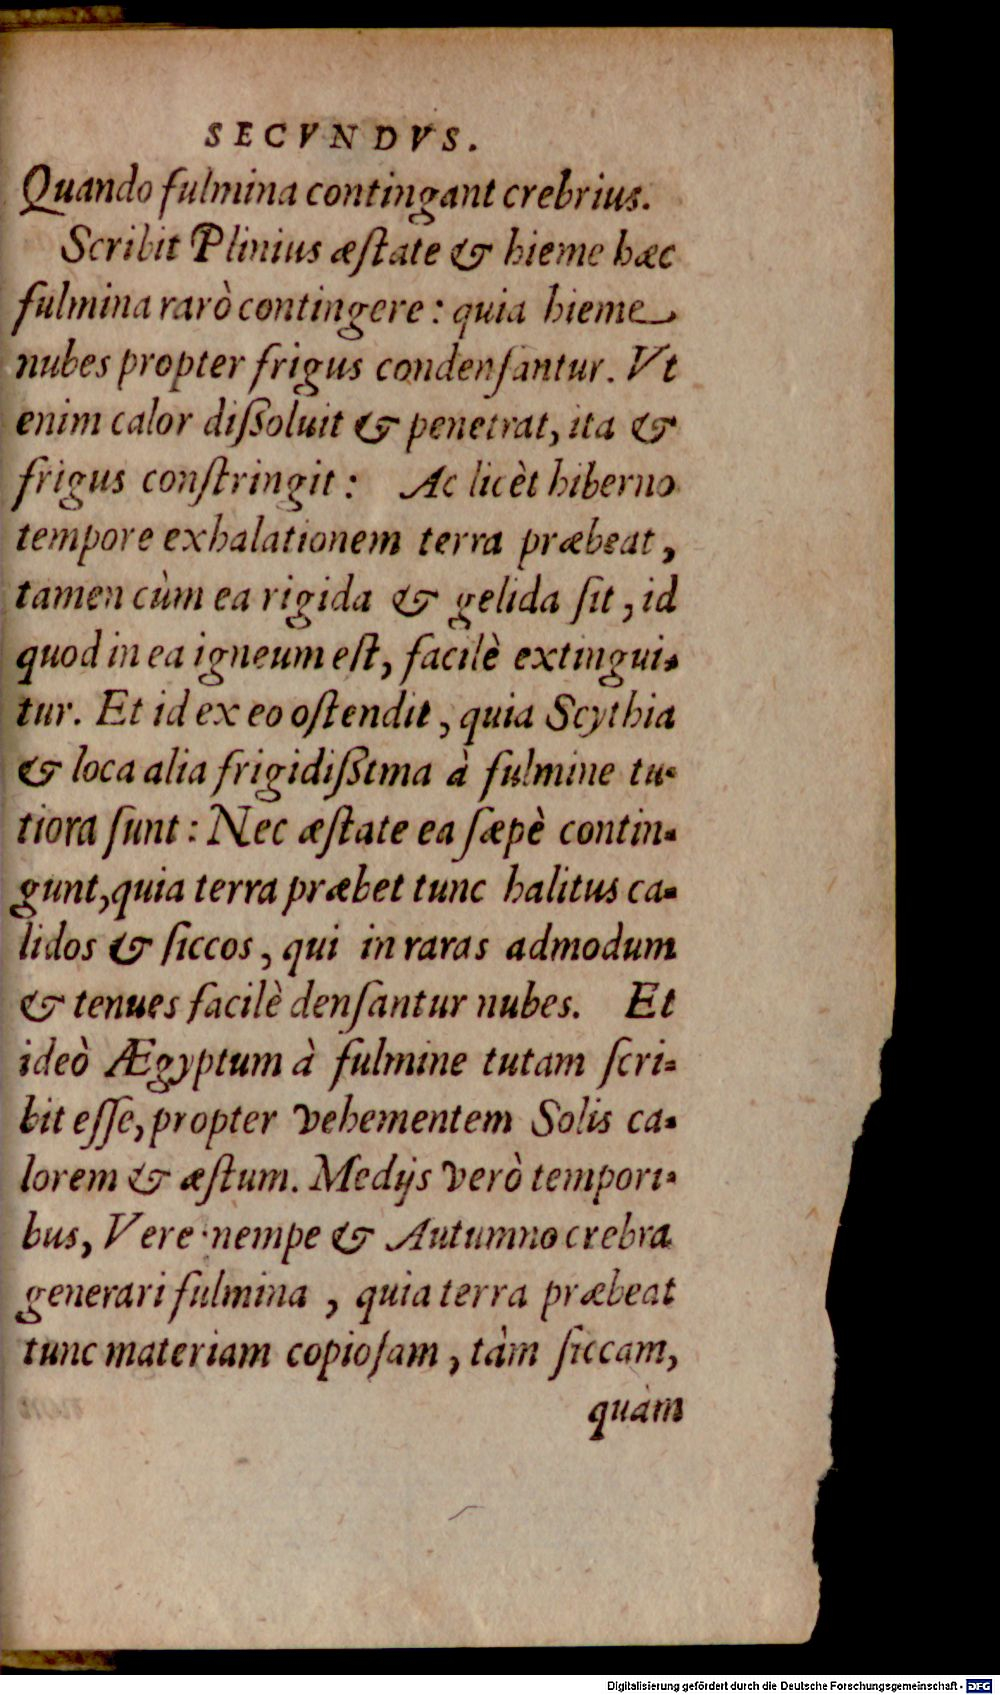 SECVNDVS.
Quando fulmina contingant crebrius.
Scribit Plinius æſtate & hieme hæc
fulmina rarò contingere: quia hieme
nubes propter frigus condenſantur. Vt
enim calor diſſoluit & penetrat, ita &
frigus conſtringit: Ac licèt hiberno
tempore exhalationem terra præbeat,
tamen cùm ea rigida & gelida ſit, id
quod in ea igneum eſt, facilè extingui-
tur. Et id ex eo oſtendit, quia Scythia
& loca alia frigidißima à fulmine tu-
tiora ſunt: Nec æſtate ea ſæpè contin-
gunt, quia terra præbet tunc halitus ca-
lidos & ſiccos, qui in raras admodum
& tenues facilè denſantur nubes. Et
ideò Ægyptum à fulmine tutam ſcri-
bit eſſe, propter vehementem Solis ca-
lorem & æſtum. Medijs verò tempori-
bus, Vere nempe & Autumno crebra
generari fulmina, quia terra præbeat
tunc materiam copioſam, tàm ſiccam,
quàm
Digitalisierung gefördert durch die Deutsche Forschungsgemeinschaft - DFG